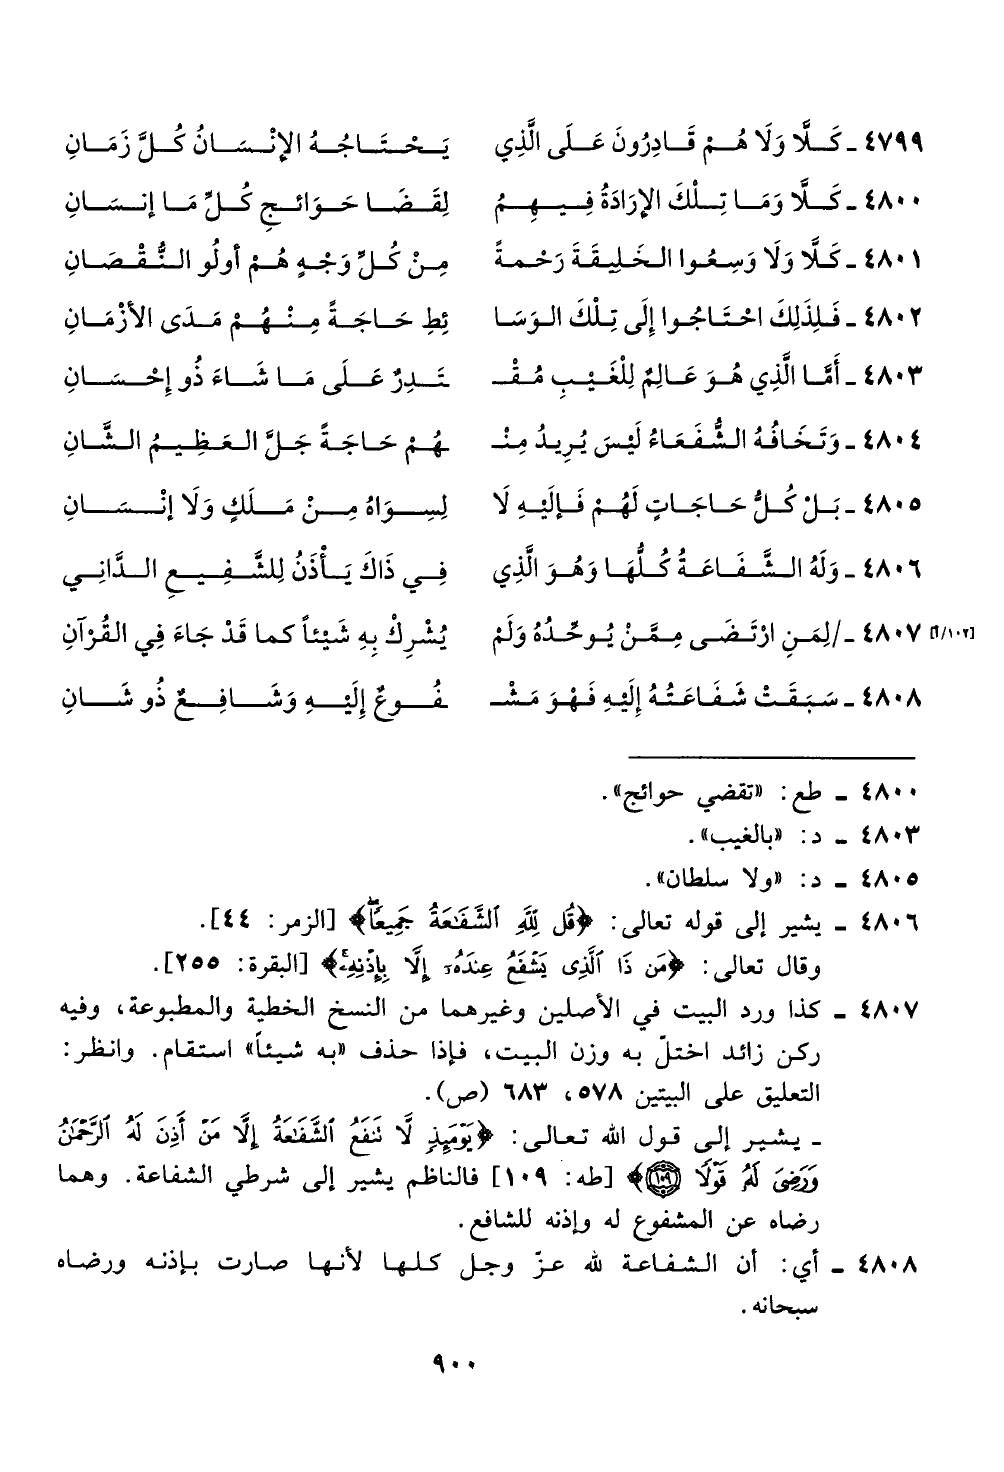 ٤٧٩٩ - كَلَّا وَلَا هُمْ قَادِرُونَ عَلَى الَّذِي يَحْتَاجُهُ الإنْسَانُ كُلَّ زَمَانِ
٤٨٠٠ - كَلَّا وَمَا تِلْكَ الإرَادَةُ فِيهِمُ لِقَضَا حَوَائِجِ كُلِّ مَا إنسَانِ
٤٨٠١ - كَلَّا وَلَا وَسِعُوا الخَلِيقَةَ رَحْمةً مِنْ كُلِّ وَجْهٍ هُمْ أولُو النُّقْصَانِ
٤٨٠٢ - فَلِذَلِكَ احْتَاجُوا إلَى تِلْكَ الوَسَا ئِطِ حَاجَةً مِنْهُمْ مَدَى الأزْمَانِ
٤٨٠٣ - أمَّا الَّذِي هُوَ عَالِمٌ لِلْغَيْبِ مُقْـ ـتَدِرٌ عَلَى مَا شَاءَ ذُو إحْسَانِ
٤٨٠٤ - وَتَخَافُهُ الشُّفَعَاءُ لَيْسَ يُرِيدُ مِنْـ ـهُمْ حَاجَةً جَلَّ العَظِيمُ الشَّانِ
٤٨٠٥ - بَلْ كُلُّ حَاجَاتٍ لَهُمْ فَإلَيْهِ لَا لِسِوَاهُ مِنْ مَلَكٍ وَلَا إنْسَانِ
٤٨٠٦ - وَلَهُ الشَّفَاعَةُ كُلُّهَا وَهُوَ الَّذِي فِي ذَاكَ يَأْذَنُ لِلشَّفِيعِ الدَّانِي
[١/١٠٢] ٤٨٠٧ - /لِمَنِ ارْتَضَى مِمَّنْ يُوحِّدُهُ وَلَمْ يُشْرِكْ بِهِ شَيْئاً كما قَدْ جَاءَ فِي القُرْآنِ
٤٨٠٨ - سَبَقَتْ شَفَاعَتُهُ إلَيْهِ فَهْوَ مَشْـ ـفُوعٌ إلَيْهِ وَشَافِعٌ ذُو شَانِ
٤٨٠٠ - طع: «تقضي حوائج».
٤٨٠٣ - د: «بالغيب».
٤٨٠٥ - د: «ولا سلطان».
٤٨٠٦ - يشير إلى قوله تعالى: ﴿قُل لِّلَّهِ ٱلشَّفَٰعَةُ جَمِيعًا﴾ [الزمر: ٤٤].
وقال تعالى: ﴿مَن ذَا ٱلَّذِى يَشْفَعُ عِندَهُۥٓ إِلَّا بِإِذْنِهِۦ﴾ [البقرة: ٢٥٥].
٤٨٠٧ - كذا ورد البيت في الأصلين وغيرهما من النسخ الخطية والمطبوعة، وفيه
ركن زائد اختلّ به وزن البيت، فإذا حذف «به شيئاً» استقام. وانظر:
التعليق على البيتين ٥٧٨، ٦٨٣ (ص).
- يشير إلى قول الله تعالى: ﴿يَوْمَئِذٍ لَّا تَنفَعُ ٱلشَّفَٰعَةُ إِلَّا مَنْ أَذِنَ لَهُ ٱلرَّحْمَٰنُ
وَرَضِىَ لَهُۥ قَوْلًا ١٠٩﴾ [طه: ١٠٩] فالناظم يشير إلى شرطي الشفاعة. وهما
رضاه عن المشفوع له وإذنه للشافع.
٤٨٠٨ - أي: أن الشفاعة لله عزّ وجل كلها لأنها صارت بإذنه ورضاه
سبحانه.
٩٠٠